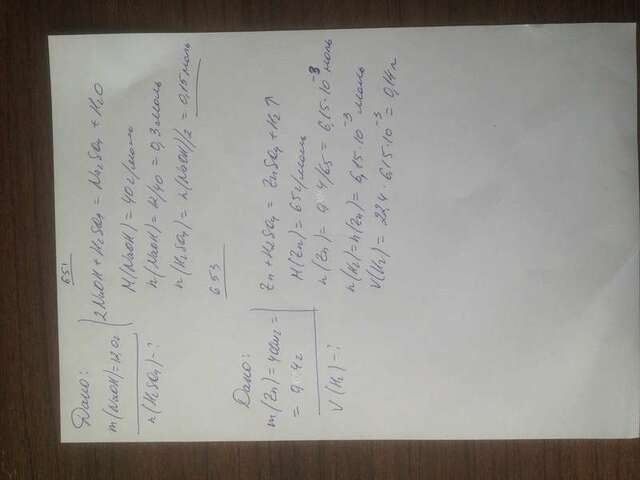 651
Дано:
m(NaOH)=12,0г
n(H2SO4)-?
2NaOH+H2SO4 = Na2SO4 + H2O
M(NaOH) = 40 г/моль
n(NaOH) = 12/40 = 0,3 моль
n(H2SO4) = n(NaOH)/2 = 0,15 моль
653
Дано:
m(Zn)=400мг=
= 0,4 г
V(H2)-?
Zn+H2SO4 = ZnSO4+H2↑
M(Zn) = 65 г/моль
n(Zn) = 0,4/65 = 6,15·10⁻³ моль
n(H2)=n(Zn) = 6,15·10⁻³ моль
V(H2) = 22,4·6,15·10⁻³ = 0,14 л